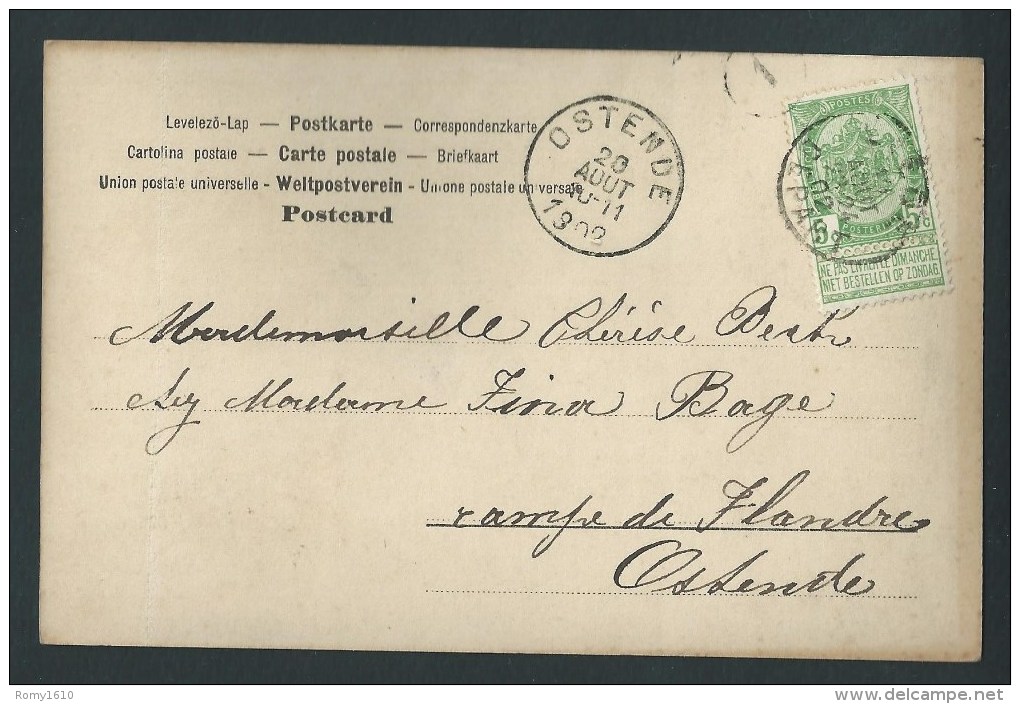 Levelező-Lap — Postkarte — Correspondenzkarte
Cartolina postale — Carte postale — Briefkaart
Union postale universelle - Weltpostverein - Unione postale universale
Postcard
OSTENDE
20
AOUT
10-11
1902
POSTES
POSTERIJEN
5c 5c
NE PAS LIVRER LE DIMANCHE
NIET BESTELLEN OP ZONDAG
Mademoiselle Thérèse
Madame Fina Bage
rampe de Flandre
Ostende
Romy1610
delcampe.net